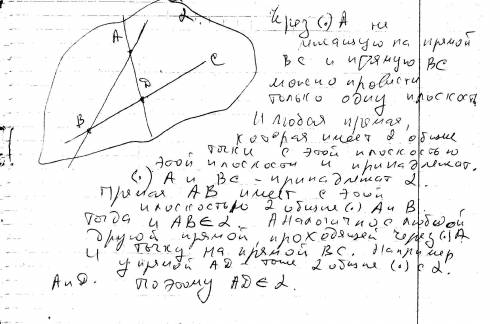 α.
A
C
D
B
Через (.) A не
лежащую на прямой
BC и прямую BC
можно провести
только одну плоскость
И любая прямая,
которая имеет 2 общие
точки с этой плоскостью
этой плоскости и принадлежат.
(.) A и BC - принадлежат α.
Прямая AB имеет с этой
плоскостью 2 общие (.) A и B.
Тогда и AB ∈ α. Аналогично с любой
другой прямой проходящей через (.) A
и точку на прямой BC. Например
у прямой AD тоже 2 общие (.) с α.
A и D. Поэтому AD ∈ α.